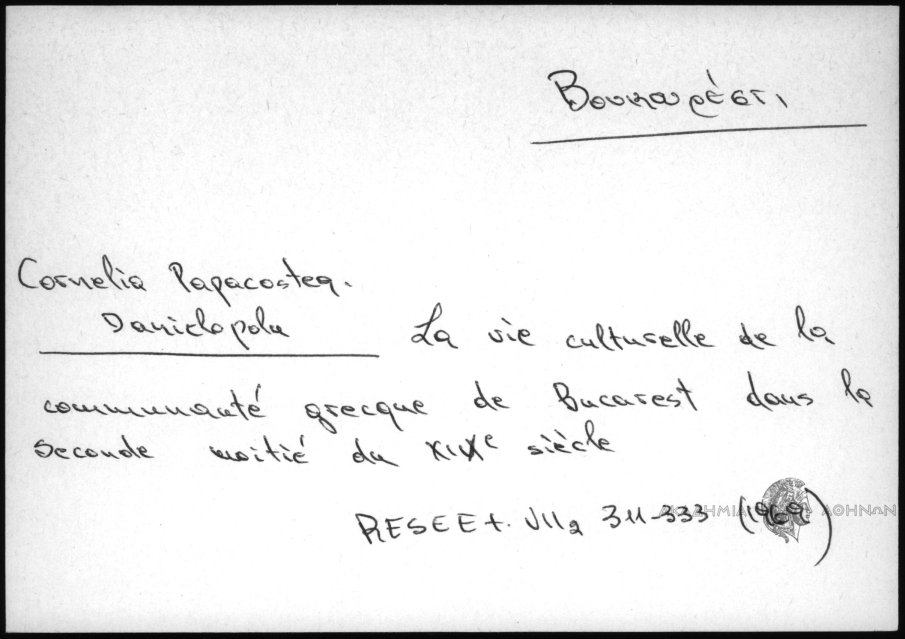 Βουκουρέστι
Cornelia Papacostea-
Danielopolu La vie culturelle de la
communauté grecque de Bucarest dans la
seconde moitié du XIXe siècle
RESEE t. VII2 311-333 (1969)
ΑΚΑΔΗΜΙΑ ΑΘΗΝΩΝ